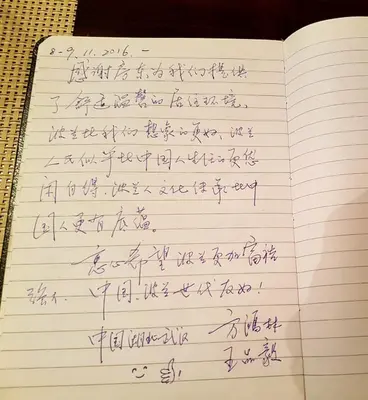 8-9.11.2016.-
感谢房东为我们提供
了舒适温馨的居住环境。
波兰比我们想象的更好，波兰
人民似乎比中国人生活的更悠
闲自得，波兰人文化传承比中
国人更有底蕴。
衷心希望波兰更加富裕
强大。中国、波兰世代友好！
中国湖北武汉 方鸿林
王品毅